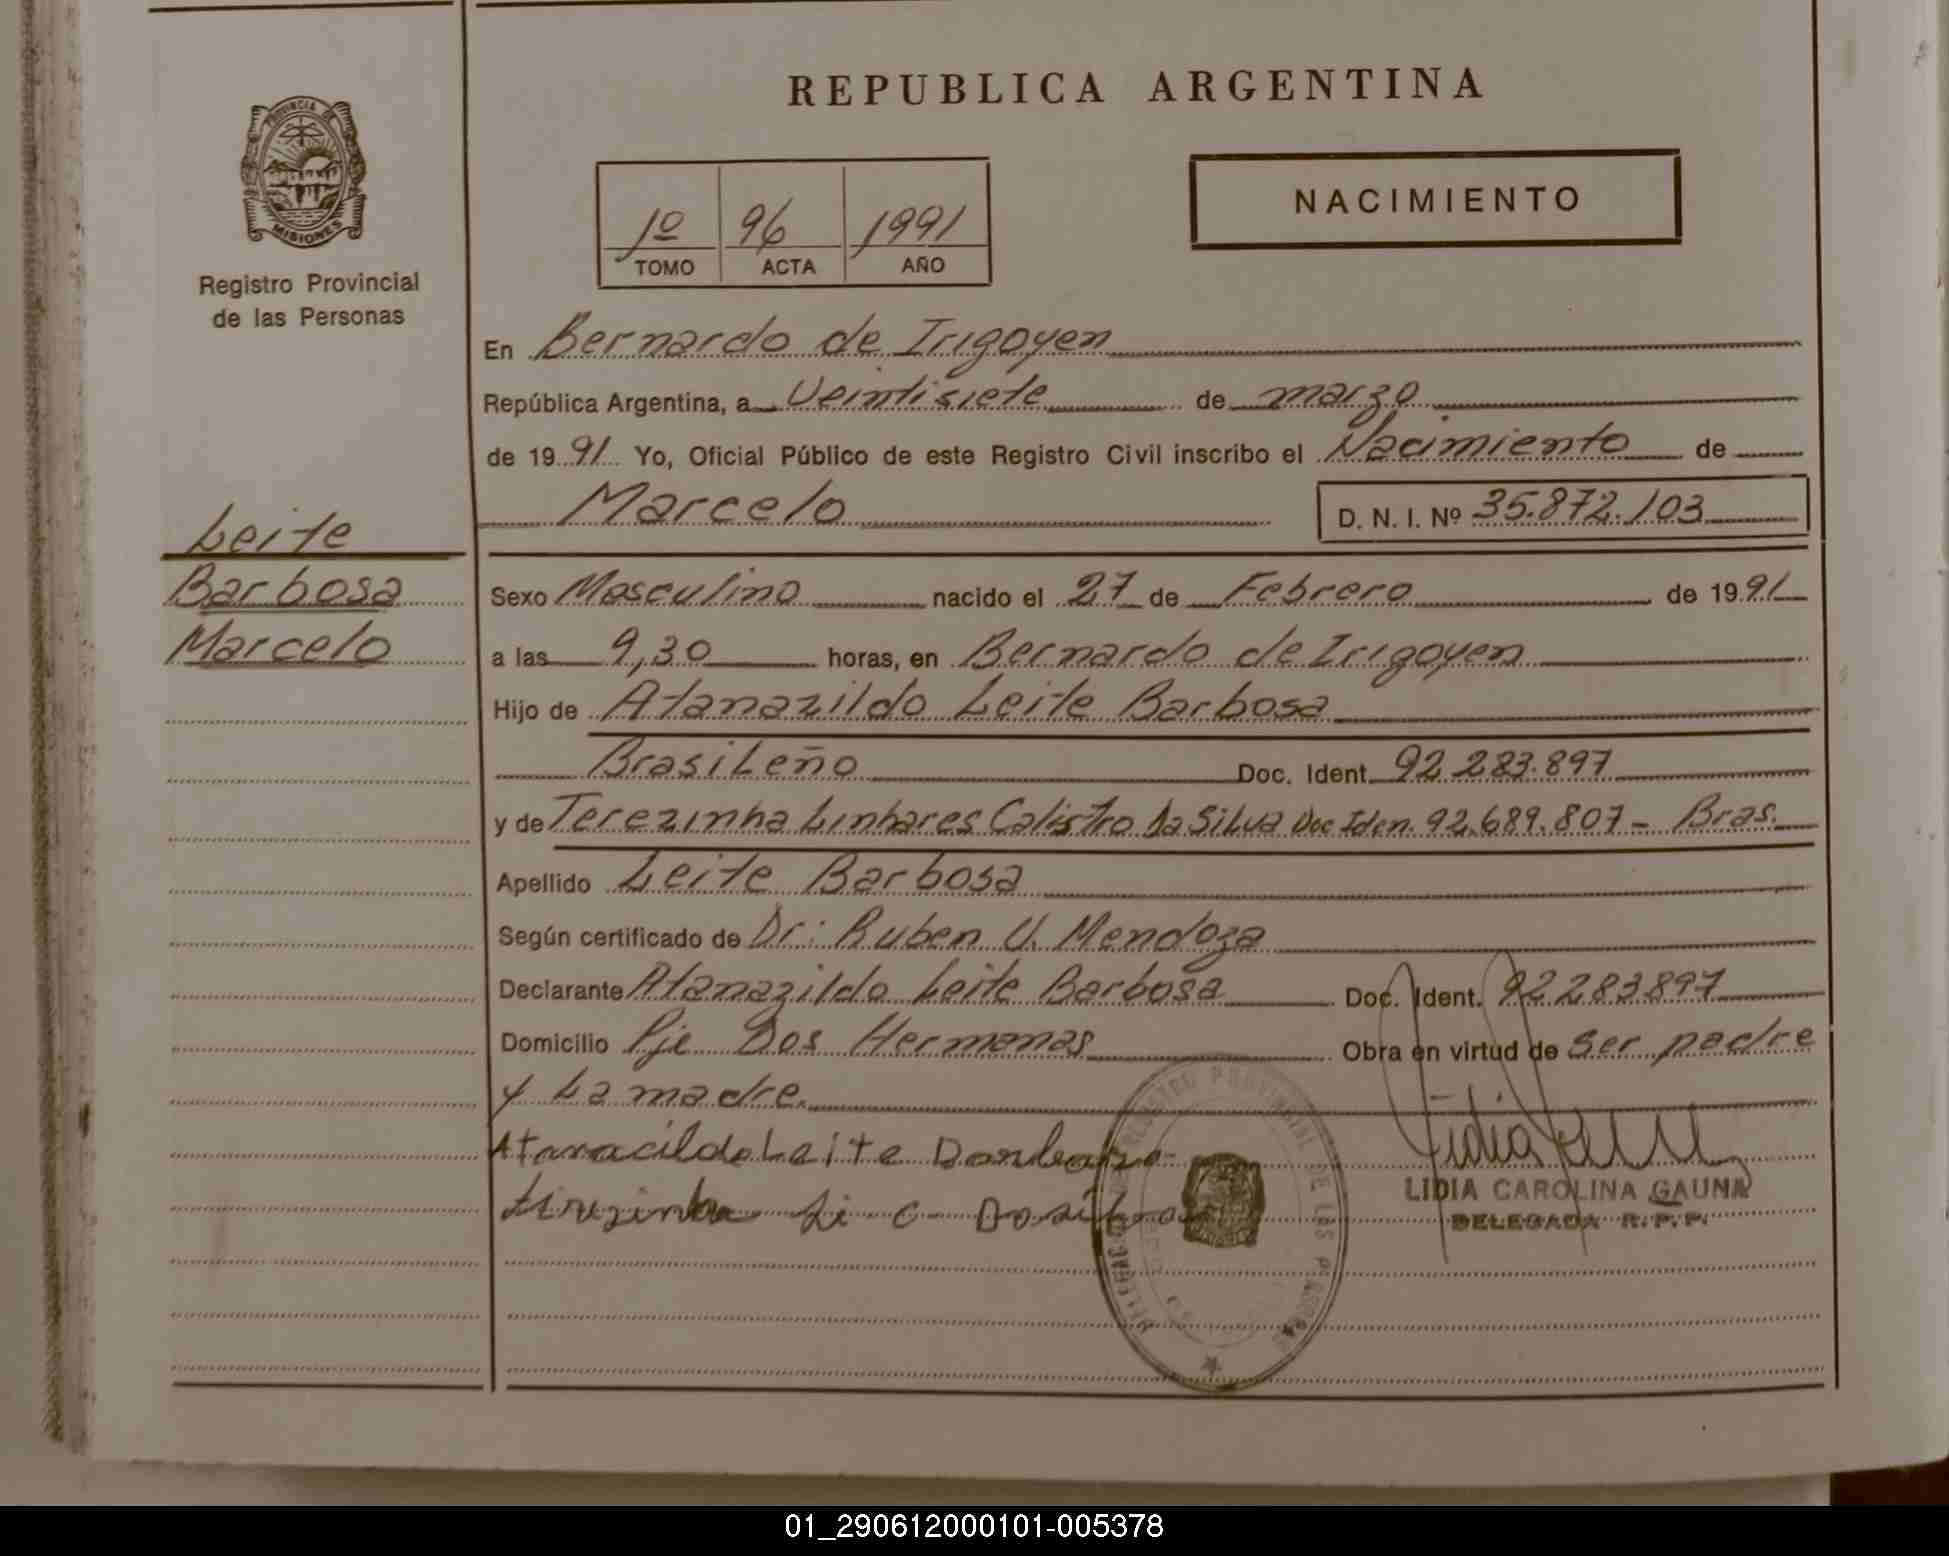 REPUBLICA ARGENTINA
PROVINCIA DE
MISIONES
Registro Provincial
de las Personas
1º 96 1991
TOMO ACTA AÑO
NACIMIENTO
En Bernardo de Irigoyen
República Argentina, a Veintisiete de marzo
de 1991 Yo, Oficial Público de este Registro Civil inscribo el Nacimiento de
Marcelo D. N. I. Nº 35.872.103
Leite
Barbosa
Marcelo
Sexo Masculino nacido el 27 de Febrero de 1991
a las 9,30 horas, en Bernardo de Irigoyen
Hijo de Atanazildo Leite Barbosa
Brasileño Doc. Ident. 92.283.897
y de Terezinha Linhares Calistro Da Silva Doc Iden. 92.689.807 - Bras.
Apellido Leite Barbosa
Según certificado de Dr: Ruben U. Mendoza
Declarante Atanazildo Leite Barbosa Doc. Ident. 92283897
Domicilio Pje Dos Hermanas Obra en virtud de ser padre
y La madre.
Atanacildo Leite
LIDIA CAROLINA GAUNA
DELEGADA R.P.P.
REGISTRO PROVINCIAL DE LAS
01_290612000101-005378